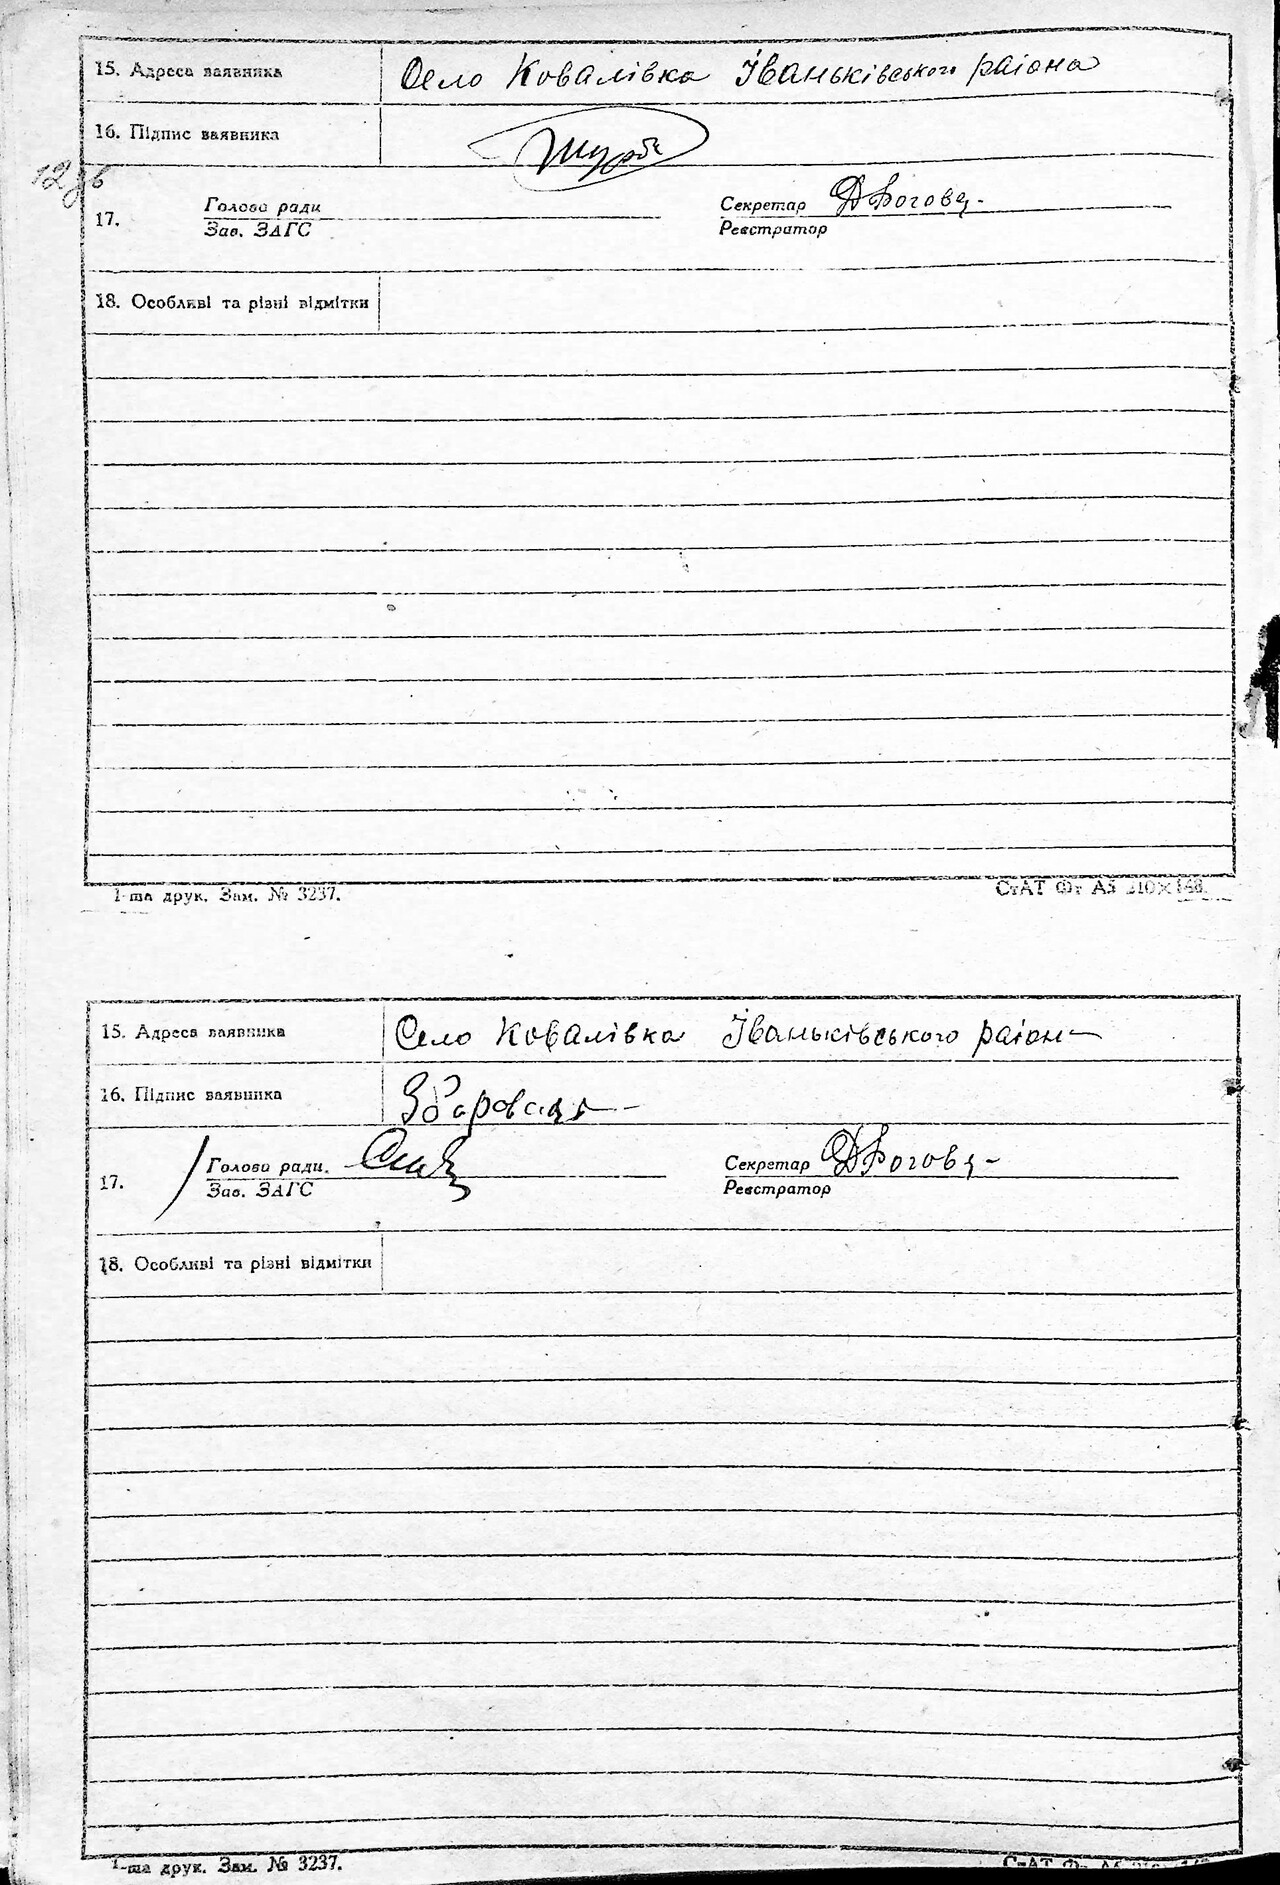 15. Адреса заявника Село Ковалівка Іваньківського раіона
16. Підпис заявника
12 зв
17. Голова ради Секретар
Зав. ЗАГС Реєстратор
18. Особливі та різні відмітки
1-ша друк. Зам. № 3237. СтАТ Фт А5 210×148.
15. Адреса заявника Село Ковалівка Іваньківського раіон
16. Підпис заявника
17. Голова ради. Секретар
Зав. ЗАГС Реєстратор
18. Особливі та різні відмітки
1-ша друк. Зам. № 3237.